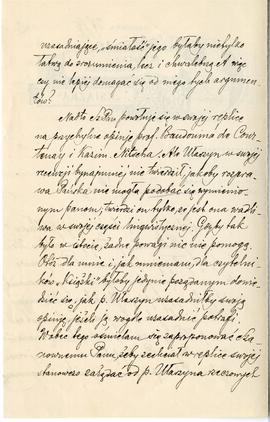 uzasadniające, "śmiałość" jego byłaby nietylko
łatwą do zrozumienia, lecz i chwalebną. A więc
czy nie lepiej domagać się od niego tych argumen-
tów?
Nadto Sz. Pan powołuje się w swojej replice
na przychylne opinje prof. Baudouina de Cour-
tenay i Kazim. Nitscha. Ale Ułaszyn w swojej
recenzji bynajmniej nie twierdzi, jakoby rozpra-
wa Pańska nie mogła podobać się wymienio-
nym panom, twierdzi on tylko, że jest ona wadli-
wa w swojej części lingwistycznej. Gdyby tak
było w istocie, żadne powagi nic nie pomogą.
Otóż dla mnie i, jak mniemam, dla czytelni-
ków "Książki" byłoby jedynie pożądanym dowie-
dzieć się, jak p. Ułaszyn uzasadniłby swoją
opinję, jeżeli ją wogóle uzasadnić potrafi.
Wobec tego ośmielam się zaproponować Sza-
nownemu Panu, żeby zechciał w replice swojej
stanowczo zażądać od p. Ułaszyna rzeczowych